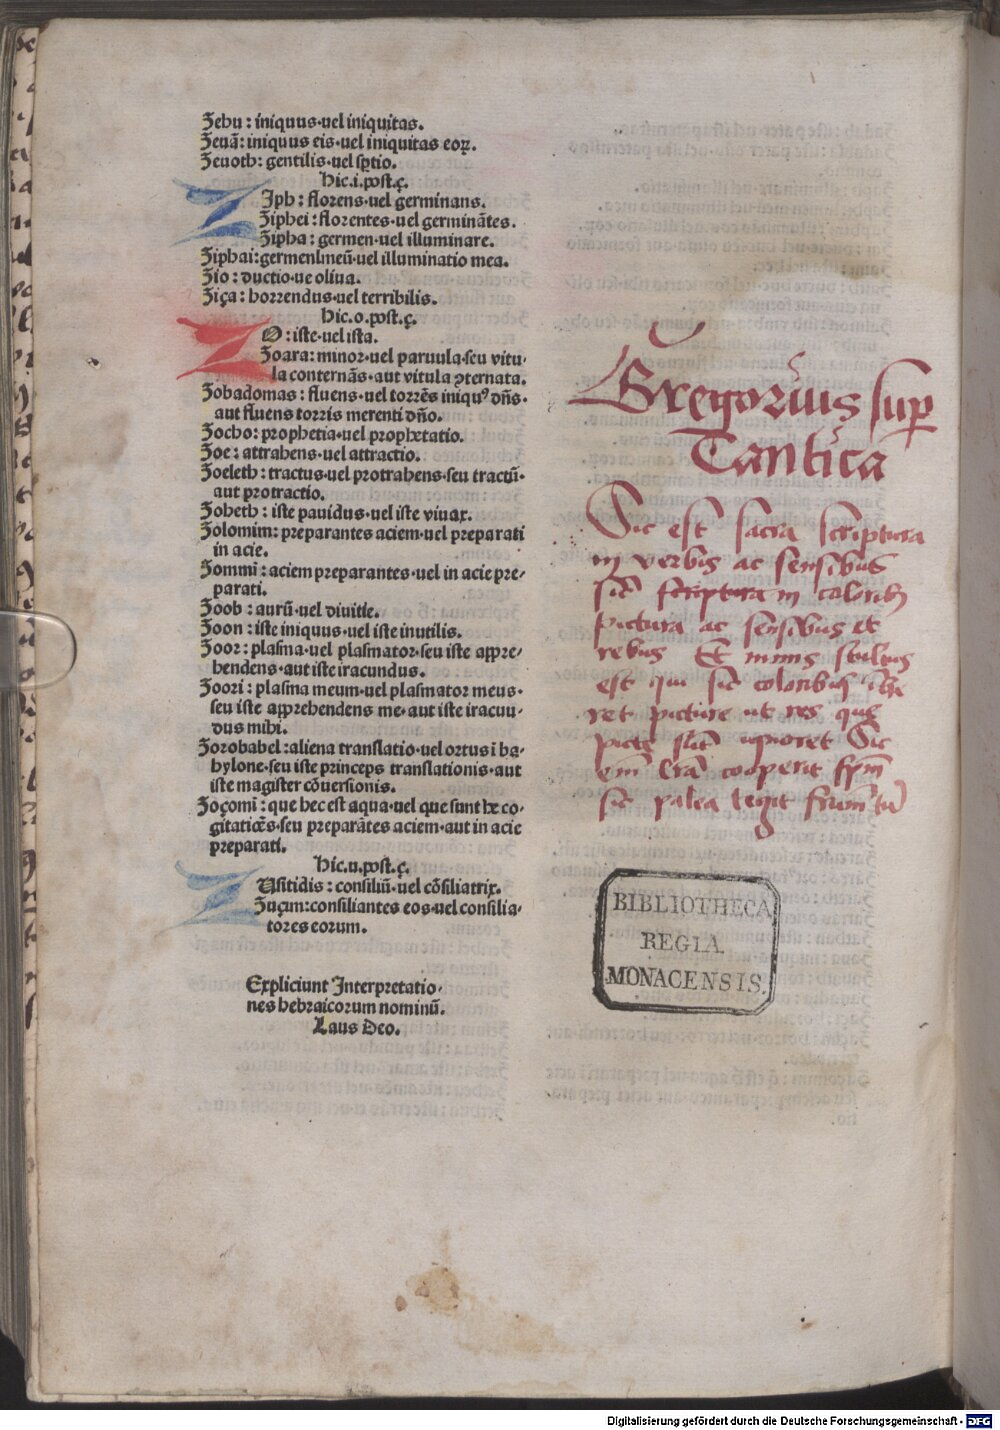 Zebu : iniquus·uel iniquitas.
Zeuā: iniquus eis·uel iniquitas eoꝝ.
Zeuoth: gentilis·uel sp̄tio.
Hic.i.post.ç.
ZIph : florens·uel germinans.
Ziphei : florentes·uel germinātes.
Zipha : germen·uel illuminare.
Ziphai:germen meū·uel illuminatio mea.
Zio : ductio·ue oliua.
Ziça : horrendus·uel terribilis.
Hic.o.post.ç.
ZO : iste·uel ista.
Zoara: minor·uel paruula·seu vitu-
la conternās·aut vitula ꝯternata.
Zobadomas : fluens·uel torrēs iniquꝰ dn̄s·
aut fluens torris merenti dn̄o.
Zocho: prophetia·uel prophetatio.
Zoe : attrahens·uel attractio.
Zoeleth : tractus·uel protrahens·seu tractū·
aut protractio.
Zoheth : iste pauidus·uel iste viuax.
Zolomim: preparantes aciem·uel preparati
in acie.
Zommi : aciem preparantes·uel in acie pre-
parati.
Zoob : aurū·uel diuitie.
Zoon : iste iniquus·uel iste inutilis.
Zoor: plasma·uel plasmator·seu iste appre-
hendens·aut iste iracundus.
Zoori : plasma meum·uel plasmator meus·
seu iste apprehendens me·aut iste iracun-
dus mihi.
Zorobabel:aliena translatio·uel ortus i ba-
bylone·seu iste princeps translationis·aut
iste magister cōuersionis.
Zoçomi : que hec est aqua·uel que sunt he co-
gitatiōes·seu preparātes aciem·aut in acie
preparati.
Hic.u.post.ç.
ZUsitidis : consiliū·uel cōsiliatrix.
Zuçim:consiliantes eos·uel consilia-
tores eorum.
Expliciunt Interpretatio-
nes hebraicorum nominū.
Laus Deo.
Gregorius sup
Cantica
Sic est sacra scriptura
in verbis ac sensibus
sic scriptura in coloribꝰ
pictura ac sensibus et
rebus Et nimis stultus
est qui sic coloribus ihe
ret picture ut res que
picte sūt ignoret Sic
em̄ lrā cooperit spm̄
sic palea tegit frumētū
BIBLIOTHECA
REGIA
MONACENSIS.
Digitalisierung gefördert durch die Deutsche Forschungsgemeinschaft - DFG